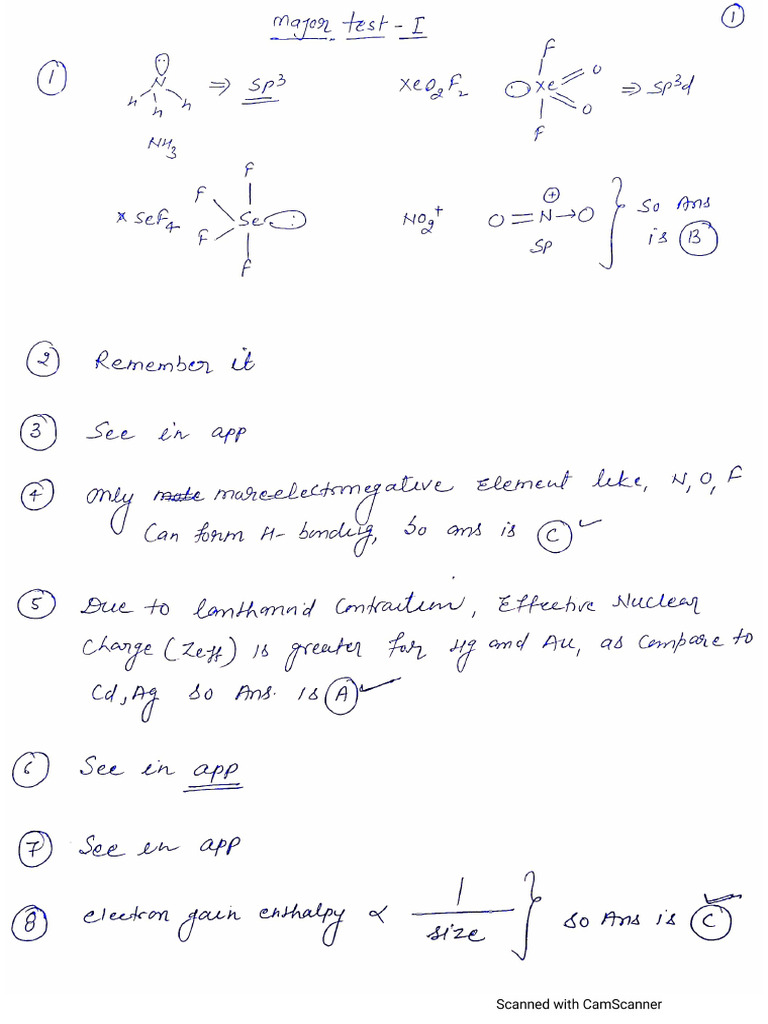 Major test - I
①
① N H H H ⇒ sp³
NH₃
XeO₂F₂ F Xe O O F ⇒ sp³d
× SeF₄ F F F Se F
NO₂⁺ O=N→O ⊕ sp } So Ans is Ⓑ
② Remember it
③ See in app
④ Only more electronegative Element like, N, O, F
Can form H- bonding, So ans is Ⓒ ✓
⑤ Due to lanthanoid Contraction, Effective Nuclear
Charge (Zeff) is greater for Hg and Au, as compare to
Cd, Ag so Ans. is Ⓐ ✓
⑥ See in app
⑦ See in app
⑧ electron gain enthalpy ∝ 1/size } so Ans is Ⓒ ✓
Scanned with CamScanner